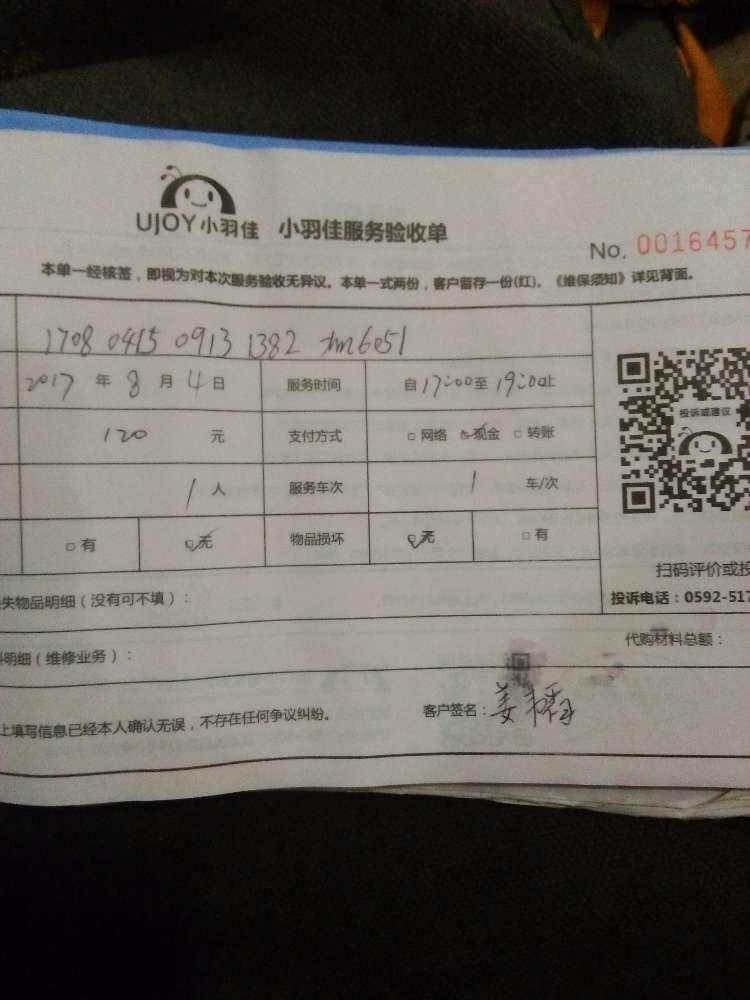 UJOY小羽佳 小羽佳服务验收单
No. 0016457
本单一经核签，即视为对本次服务验收无异议。本单一式两份，客户留存一份(红)。《维保须知》详见背面。
1708 0415 0913 1382
2017 年 8 月 4 日 服务时间 自 17:00 至 19:00 止
投诉或建议
120 元 支付方式 □ 网络 现金 □ 转账
1 人 服务车次 1 车/次
□ 有 无 物品损坏 无 □ 有
扫码评价或投
失物品明细（没有可不填）：
投诉电话：0592-517
明细（维修业务）：
代购材料总额：
上填写信息已经本人确认无误，不存在任何争议纠纷。
客户签名：姜